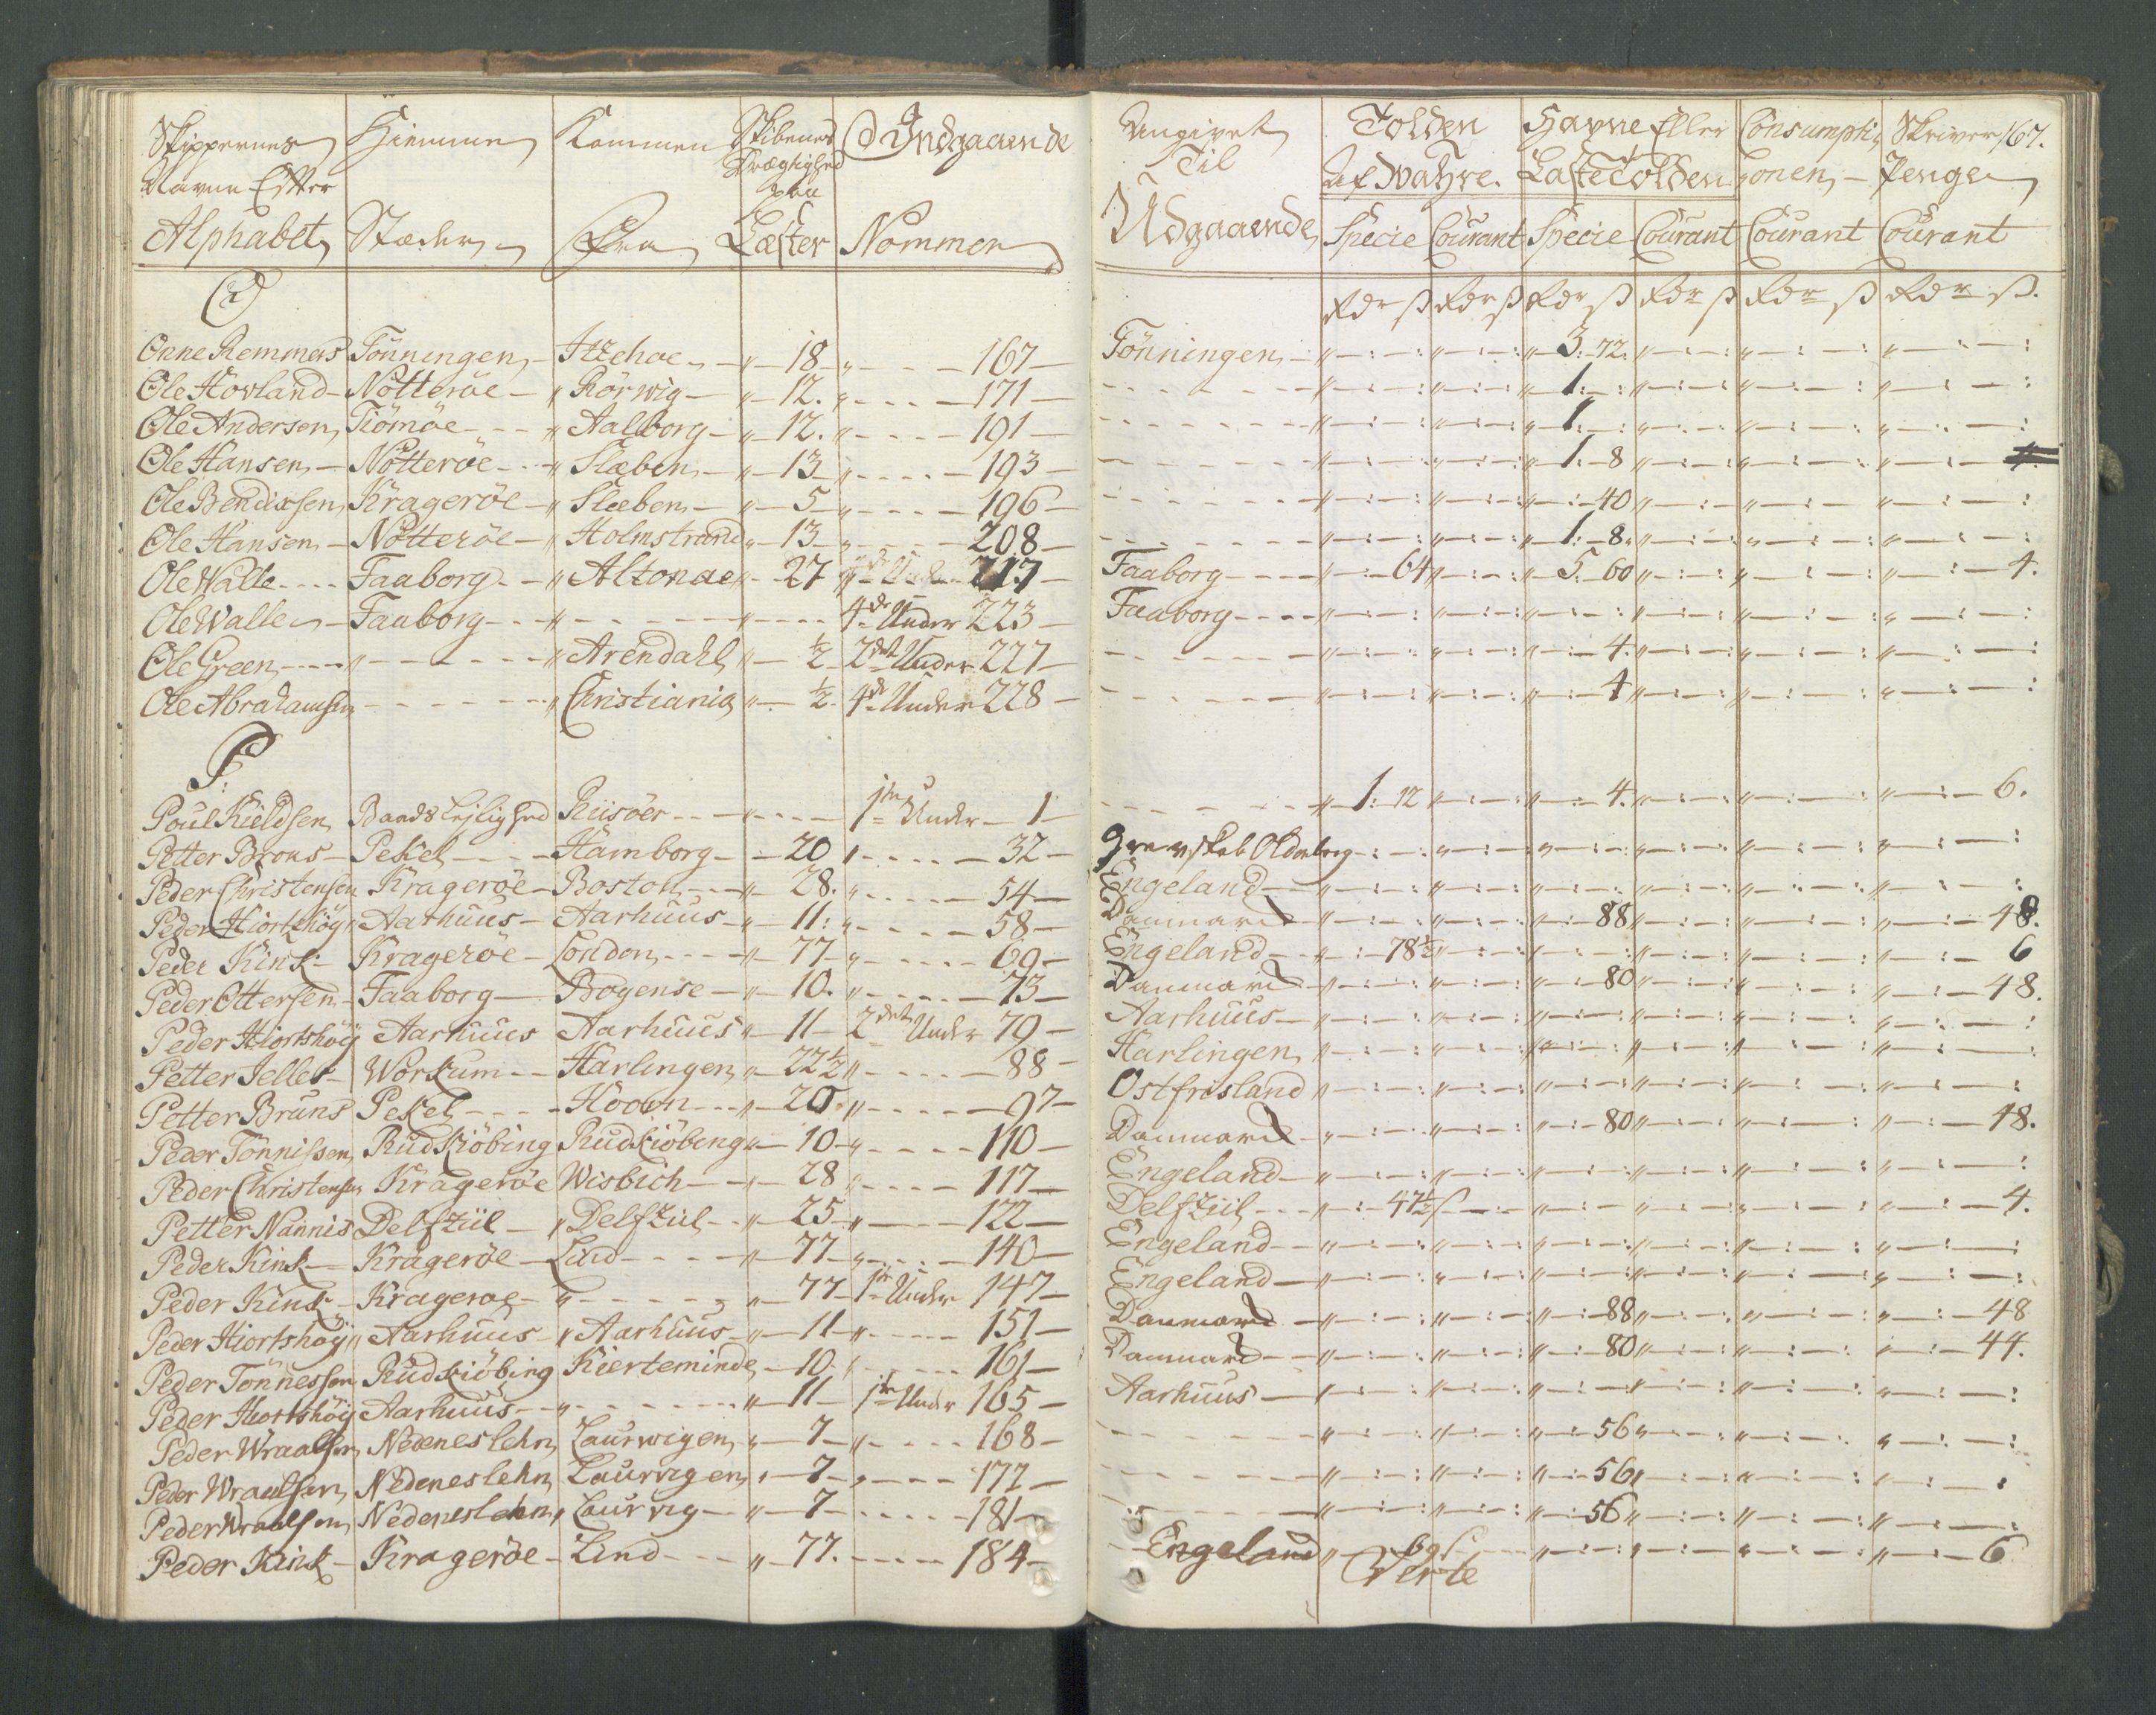 Skippernes Hiemme Kommen Skibenes Indgaaende
Navne Efter Drægtighed
paa
Alphabet Stæder Fra Læster Nommer
O
Onne Remmers Tönningen Itzehoe 18 167
Ole Hovland Nötteröe Rörwig 12. 171
Ole Andersen Tiömöe Aalborg 12. 191
Ole Hansen Nötteröe Slæben 13 193
Ole Bendixsen Krageröe Slæben 5 196
Ole Hansen Nötteröe Holmstrand 13 208
Ole Walle Faaborg Altonae 27 217
Ole Walle Faaborg 4de Under 223
Ole Green Arendahl ½ 2det Under 227
Ole Abrahamsen Christiania ½ 4de Under 228
P:
Poul Kieldsen Baads Lejlighed Riisöer 1ste Under 1
Petter Brons Pekel Hamborg 20 32
Peder Christensen Krageröe Boston 28. 54
Peder Hiortshög Aarhuus Aarhuus 11: 58
Peder Kink Krageröe London 77 69
Peder Ottersen Faaborg Bogense 10. 73
Peder Hiortshöy Aarhuus Aarhuus 11 2det Under 79
Petter Jelles Workum Harlingen 22½ 88
Petter Bruns Pekel Hoorn 20 97
Peder Tönnissen Rudkiöbing Rudkiöbing 10 110
Peder Christensen Krageröe Wisbich 28 117
Petter Nannis Delfziil Delfziil 25 122
Peder Kink Krageröe Lind 77 140
Peder Kink Krageroe 77 1ste Under 147
Peder Hiortshöy Aarhuus Aarhuus 11 151
Peder Tönnessen Rudkiöbing Kierteminde 10 161
Peder Hiortshöy Aarhuus 11 1ste Under 165
Peder Wraalsen Nedeneslehn Laurwigen 7 168
Peder Wraalsen Nedeneslehn Laurvigen 7 177
Peder Wraalsen Nedeneslehn Laurvig 7 181
Peder Kink Krageröe Lind 77. 184
Angivet Tolden Havne Eller Consumpti Skriver 167.
Til Af Wahre. LasteTolden onen Penge
Udgaaende Specie Courant Specie Courant Courant Courant
Rdr ß Rdr ß Rdr ß Rdr ß Rdr ß Rdr ß.
Tönningen 3. 72.
1:
1:
1. 8
40
1. 8.
Faaborg 64 5. 60 4.
Faaborg
4.
4
1. 12 4. 6.
Grevskab Oldenborg
Engeland
Danmark 88 48.
Engeland 78½ 6
Danmark 80 48.
Aarhuus
Harlingen
Ostfrisland
Danmark 80 48.
Engeland
Delfziil 47½ 4.
Engeland
Engeland
Danmark 88 48
Danmark 80 44.
Aarhuus
56
56
56
Engeland 69 6
Verte